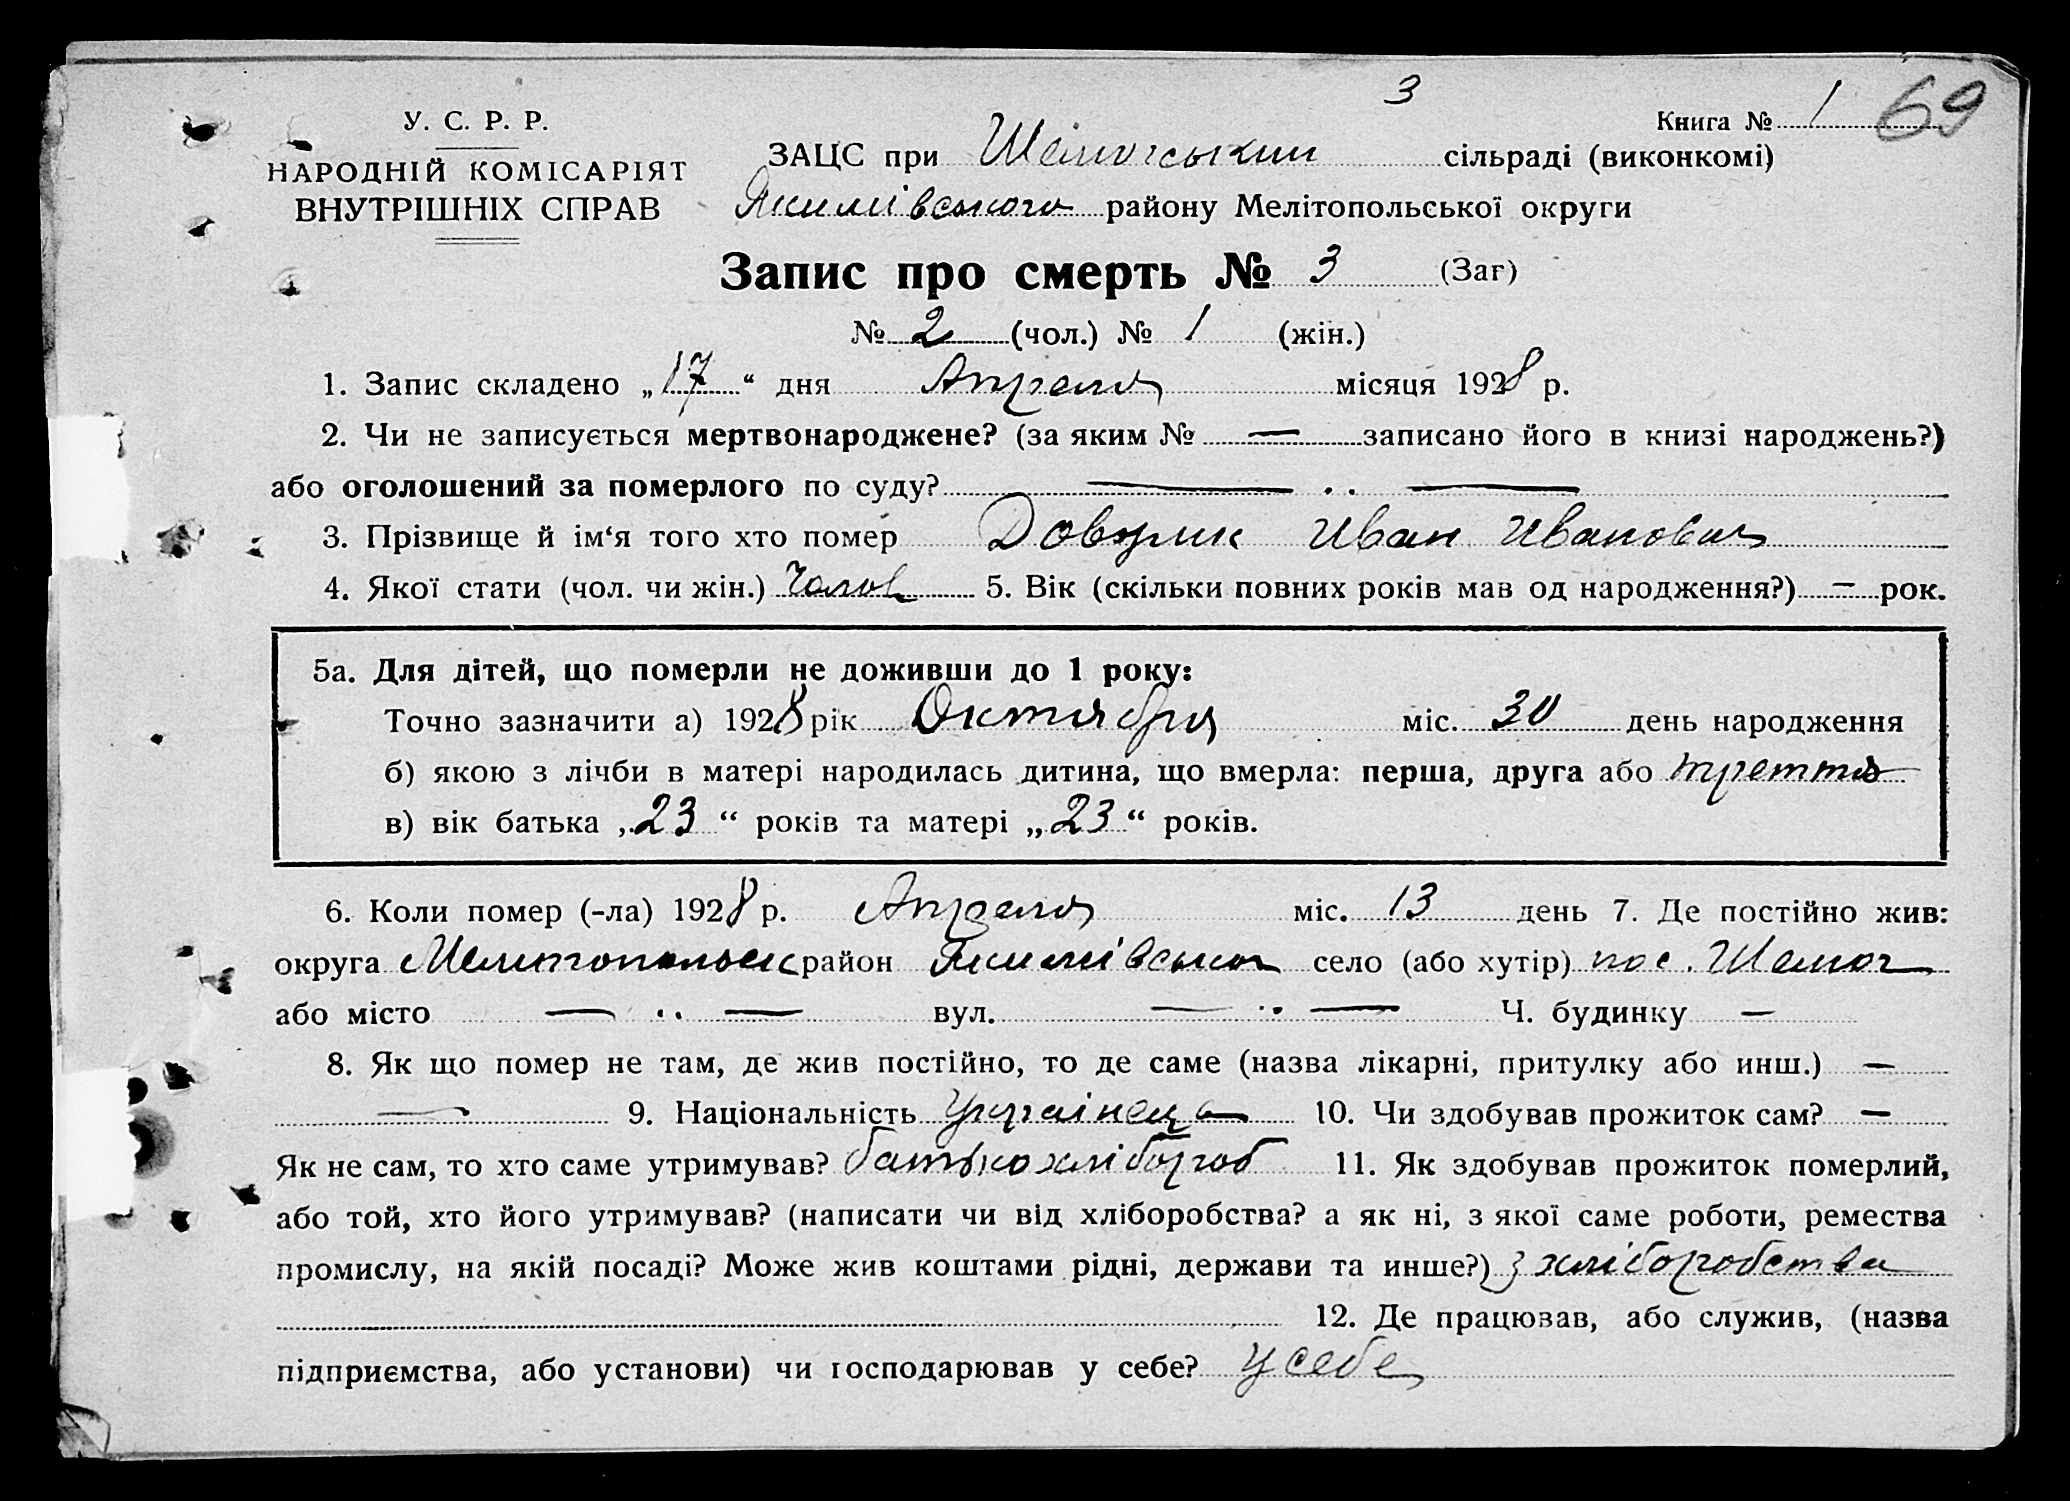 3
У. С. Р. Р.
Книга № 1 69
НАРОДНІЙ КОМІСАРІЯТ
ВНУТРІШНІХ СПРАВ
ЗАЦС при сільраді (виконкомі)
Якимівського району Мелітопольської округи
Запис про смерть № 3 (Заг)
№ 2 (чол.) № 1 (жін.)
1. Запис складено „17“ дня Апреля місяця 1928 р.
2. Чи не записується мертвонароджене? (за яким № — записано його в книзі народжень?)
або оголошений за померлого по суду? — .. —
3. Прізвище й ім‘я того хто помер Иван Иванович
4. Якої стати (чол. чи жін.) Чолов 5. Вік (скільки повних років мав од народження?) — рок.
5а. Для дітей, що померли не доживши до 1 року:
Точно зазначити а) 1928 рік Октября міс. 30 день народження
б) якою з лічби в матері народилась дитина, що вмерла: перша, друга або третта
в) вік батька „23“ років та матері „23“ років.
6. Коли помер (-ла) 1928 р. Апреля міс. 13 день 7. Де постійно жив:
округа Мелитопольск район Якимівськог село (або хутір) пос.
або місто — .. — вул. — .. — Ч. будинку —
8. Як що помер не там, де жив постійно, то де саме (назва лікарні, притулку або инш.) —
— 9. Національність Украінець 10. Чи здобував прожиток сам? —
Як не сам, то хто саме утримував? батько хлібороб 11. Як здобував прожиток померлий,
або той, хто його утримував? (написати чи від хліборобства? а як ні, з якої саме роботи, ремества
промислу, на якій посаді? Може жив коштами рідні, держави та инше?) з хліборобства
12. Де працював, або служив, (назва
підприємства, або установи) чи господарював у себе? у себе